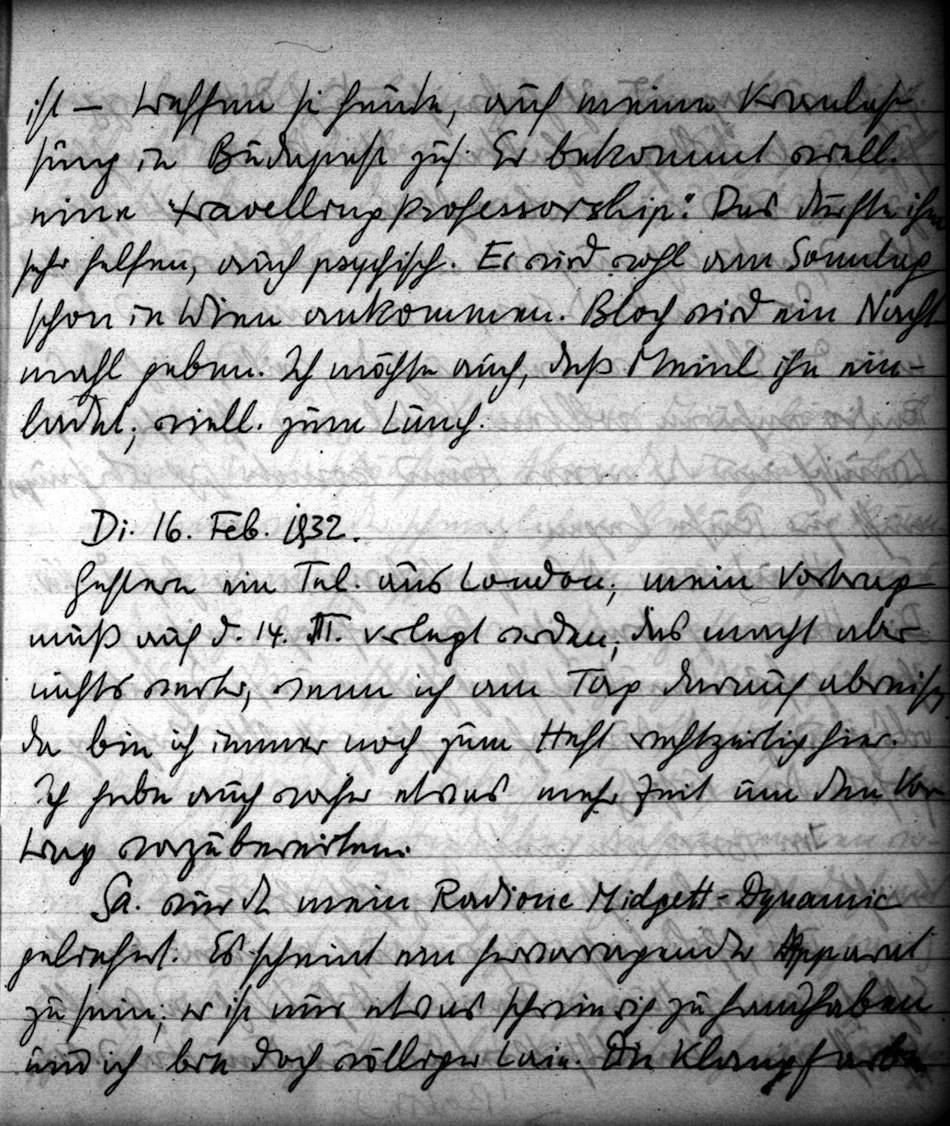 ist – treffen sie heute, auf meine Veranlas-
sung in Budapest zus. Er bekommt viell.
eine "travelling Professorship". Das dürfte ihm
sehr helfen, auch psychisch. Er wird wohl am Sonntag
schon in Wien ankommen. Bloch wird ein Nacht
mahl geben. Ich möchte auch, daß Meinl ihn ein-
ladet, viell. zum Lunch.
Di. 16. Feb. 1932.
Gestern ein Tel. aus London; mein Vortrag
muß auf d. 14. III. verlegt werden; das macht aber
nichts weiter, wenn ich am Tag darauf abreise,
da bin ich immer noch zum Heft rechtzeitig hier.
Ich habe auch vorher etwas mehr Zeit um den Vor
trag vorzubereiten.
Sa. wurde mein Radione Midgett-Dynamic
geliefert. Es scheint ein hervorragender Apparat
zu sein; er ist nur etwas schwierig zu handhaben
und ich bin doch völliger Laie. Die Klangfarbe